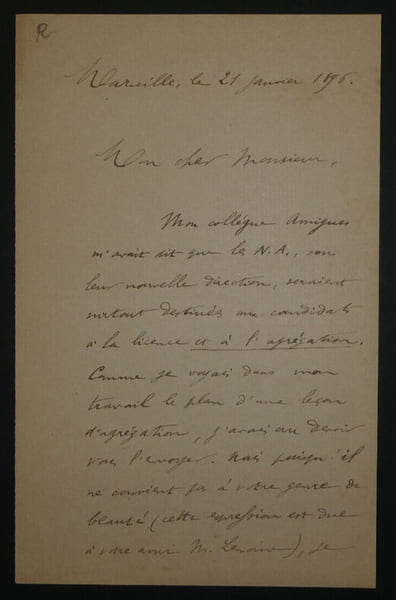 R
Marseille, le 21 Janvier 1896.
Mon cher Monsieur,
Mon collègue Amigues
m'avait dit que les N.A., sous
leur nouvelle direction, seraient
surtout destinés aux candidats
à la licence et à l'agrégation.
Comme je voyais dans mon
travail le plan d'une leçon
d'agrégation, j'avais cru devoir
vous l'envoyer. Mais puisqu'il
ne convient pas à votre genre de
beauté (cette expression est due
à votre ami M. Lemoine), je